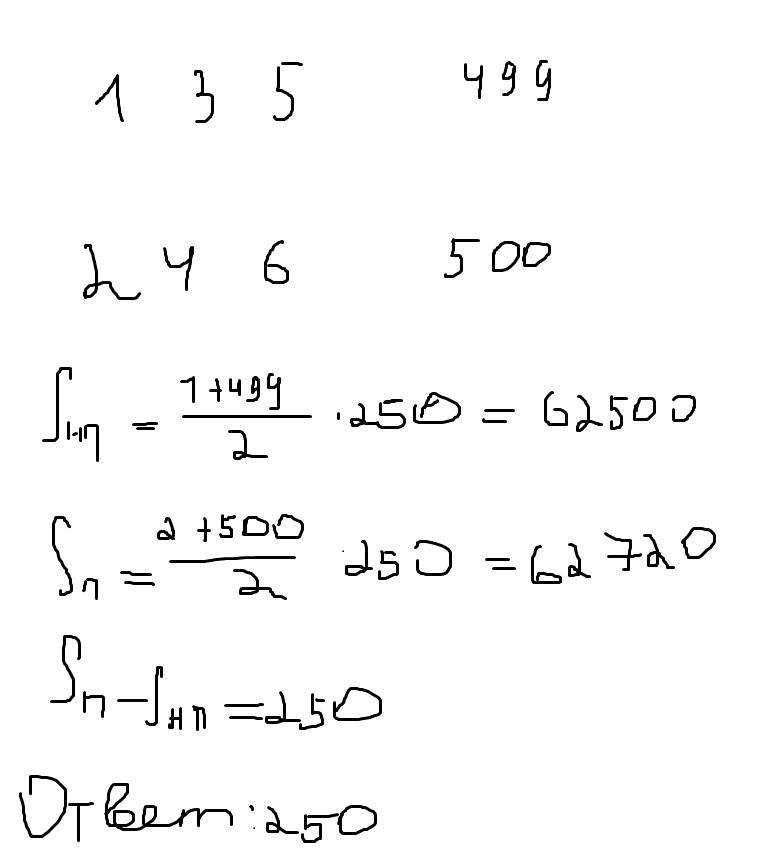 1 3 5 499
2 4 6 500
Sнп = (1+499)/2 · 250 = 62500
Sп = (2+500)/2 · 250 = 62720
Sп - Sнп = 250
Ответ: 250